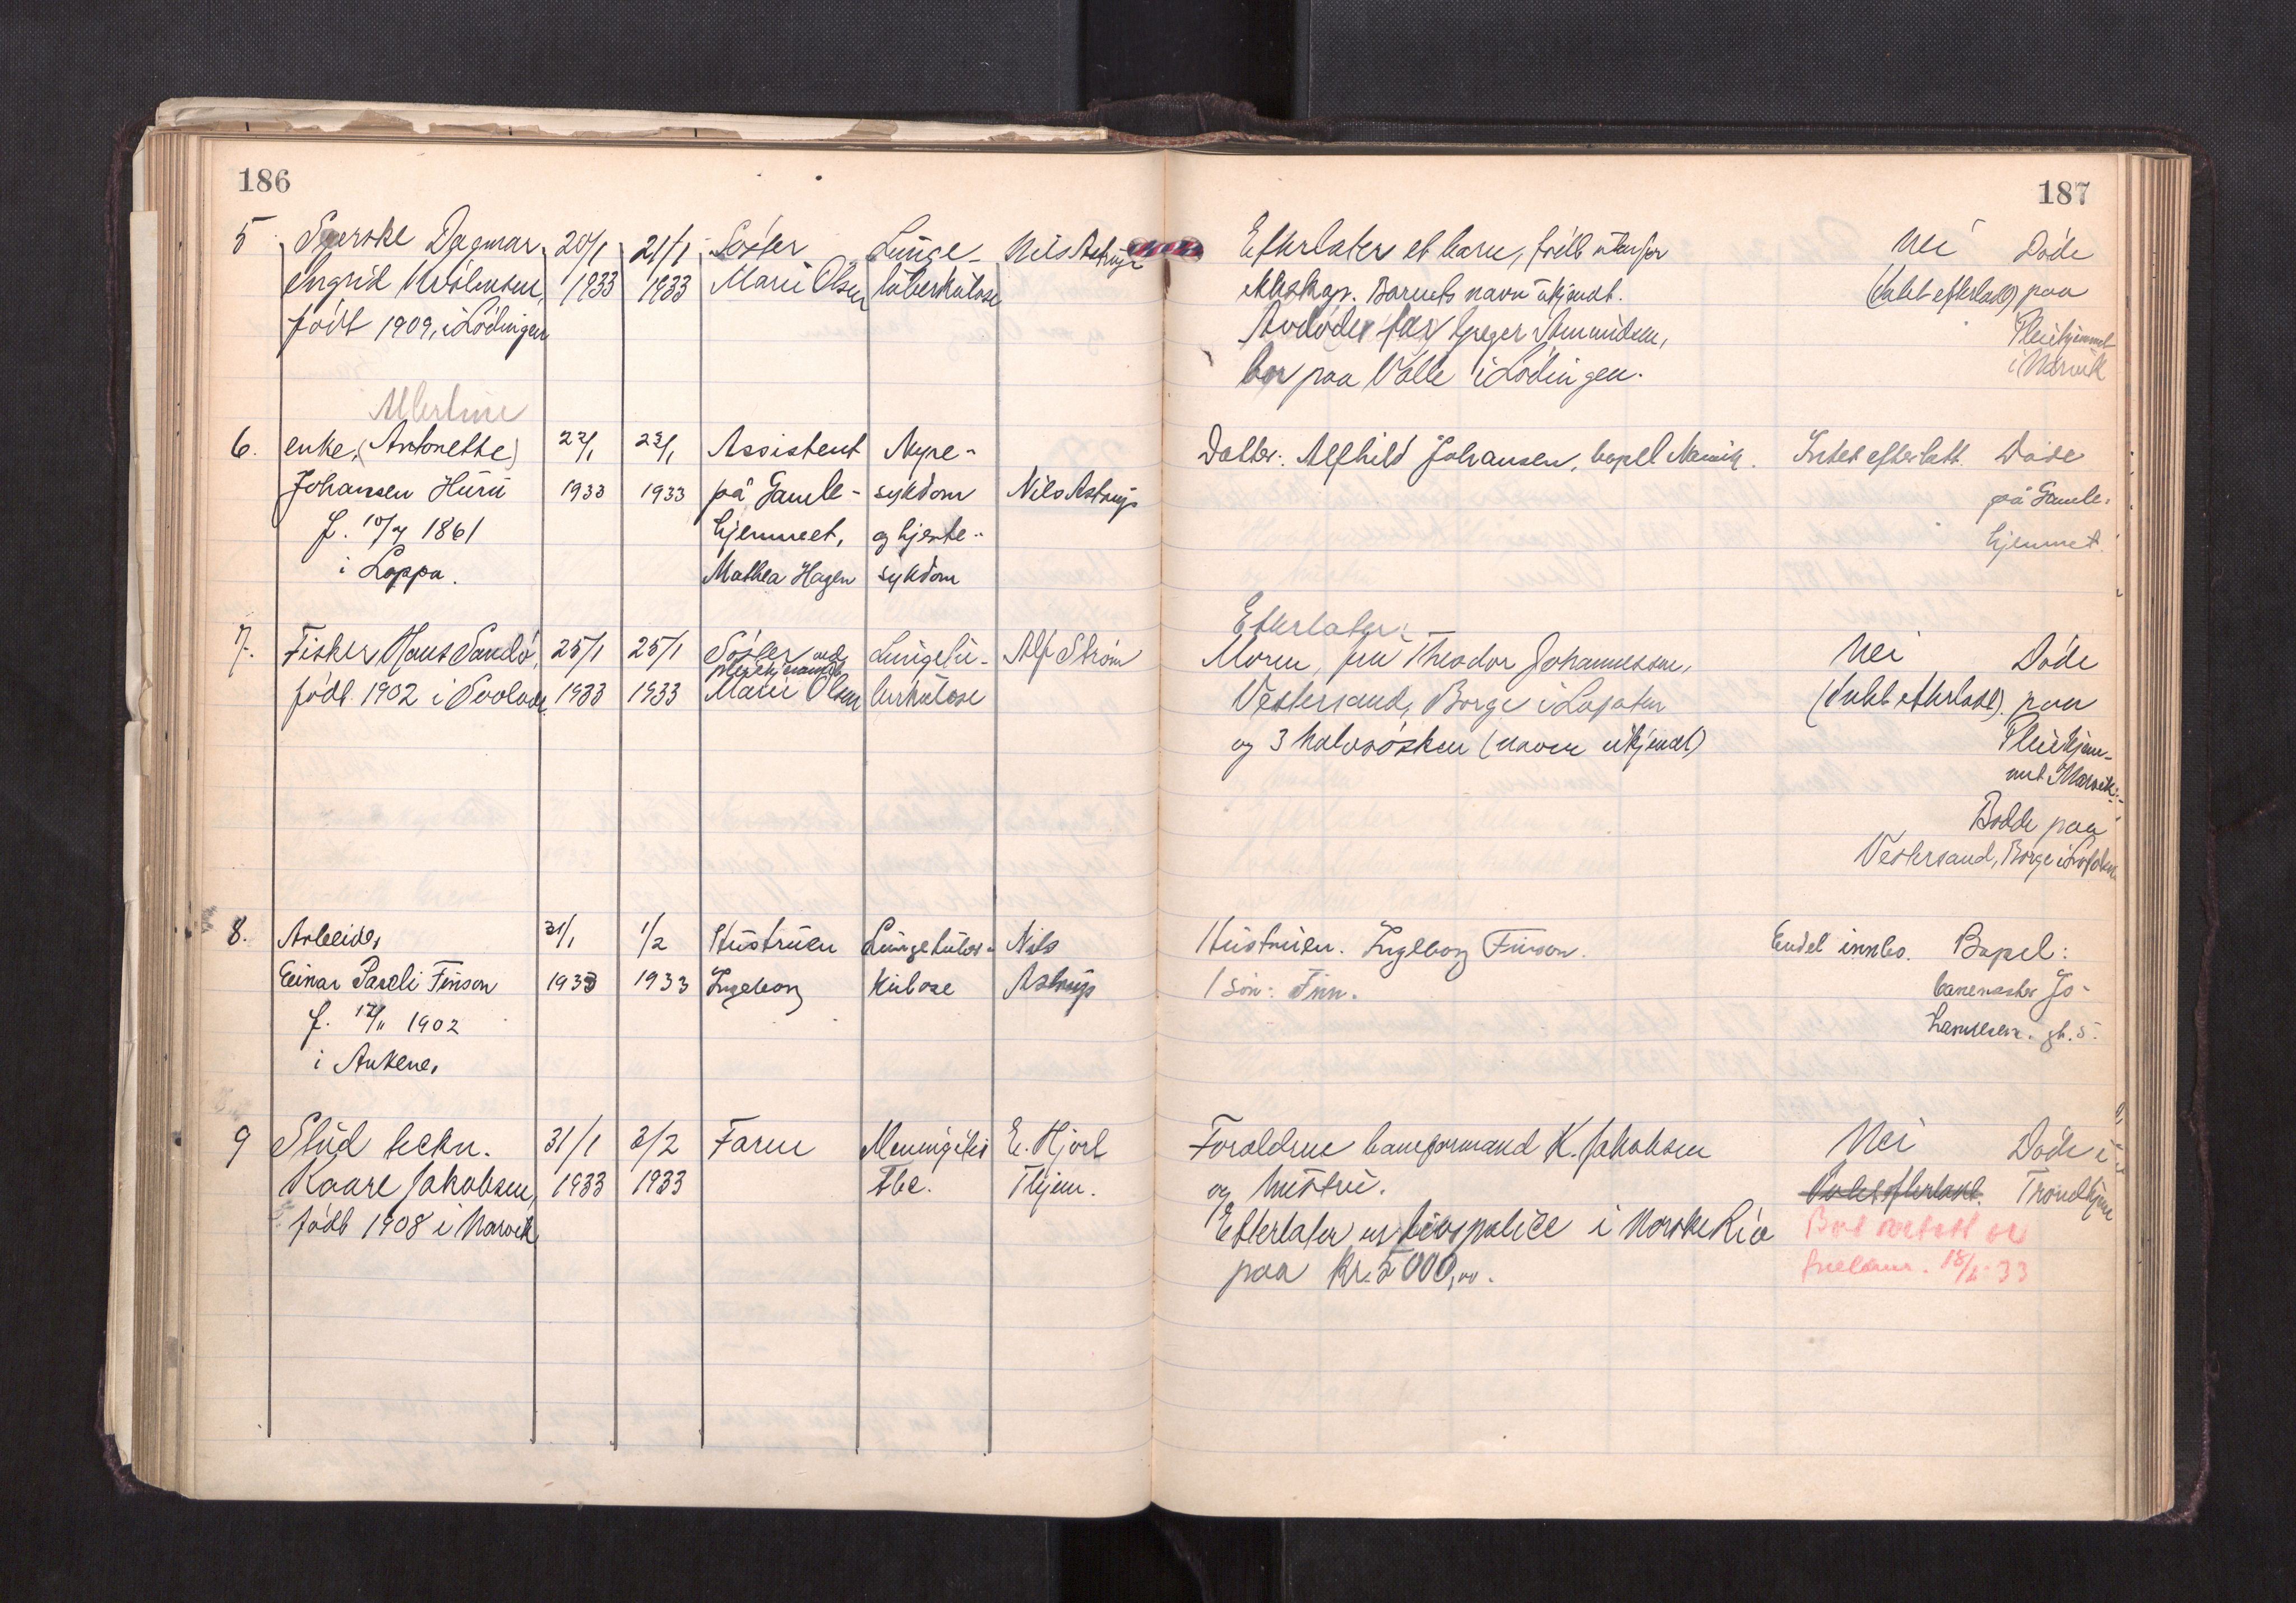 186
5 Dagmar 20/1 21/1 Søster Lunge- Nils Astrup
Ingrid 1933 1933 Marie Olsen tuberkulose
født 1909, i Lødingen
6. enke, (Antonette) 22/1 23/1 Assistent Nyre-
Johansen Huru 1933 1933 på Gamle- sykdom Nils Astrup
f. 10/7 1861 hjemmet, og hjerte-
i Loppa. Mathea Hagen sykdom
7. Fisker Hans Sandø, 25/1 25/1 Søster ved Lungetu- Alf Strøm
pleiehjemmet
født 1902 i Svolvær 1933 1933 Marie Olsen berkulose
8. Arbeider 31/1 1/2 Hustruen Lungetuber- Nils
Einar Pareli Finson 1933 1933 Ingeborg kulose Astrup
f. 12/11 1902
i Ankenes
9 Stud techn. 31/1 2/2 Faren Meningitis E. Hjort
Kaare Jakobsen, 1933 1933 Tbc. Thjem.
født 1908 i Narvik
187
Efterlater et barn, født utenfor Nei Døde
ekteskap. Barnets navn ukjendt. (Intet efterlatt) paa
Avdødes far Amundsen, Pleiehjemmet
bor paa Valle i Lødingen. i Narvik
Datter: Alfhild Johansen, bopel Narvik. Intet efterlatt. Døde
på Gamle-
hjemmet.
Efterlater:
Moren, fru Theodor Johannessen, Nei Døde
Vestersand, Borge i Lofoten (Intet efterlatt). paa
og 3 halvsøsken (navn ukjendt) Pleiehjem-
met Narvik.
Bodde paa
Vestersand, Borge i Lofoten
Hustruen. Ingeborg Finson. Endel innbo. Bopel:
1 søn: Finn. banemester Jo-
hannesen. gt. 5.
Foreldrene baneformand K. Jakobsen Nei Døde i
og hustru. Intet efterlatt. Trondhjem
Efterlater en livspolice i Norske Liv
paa kr. 5000,00.